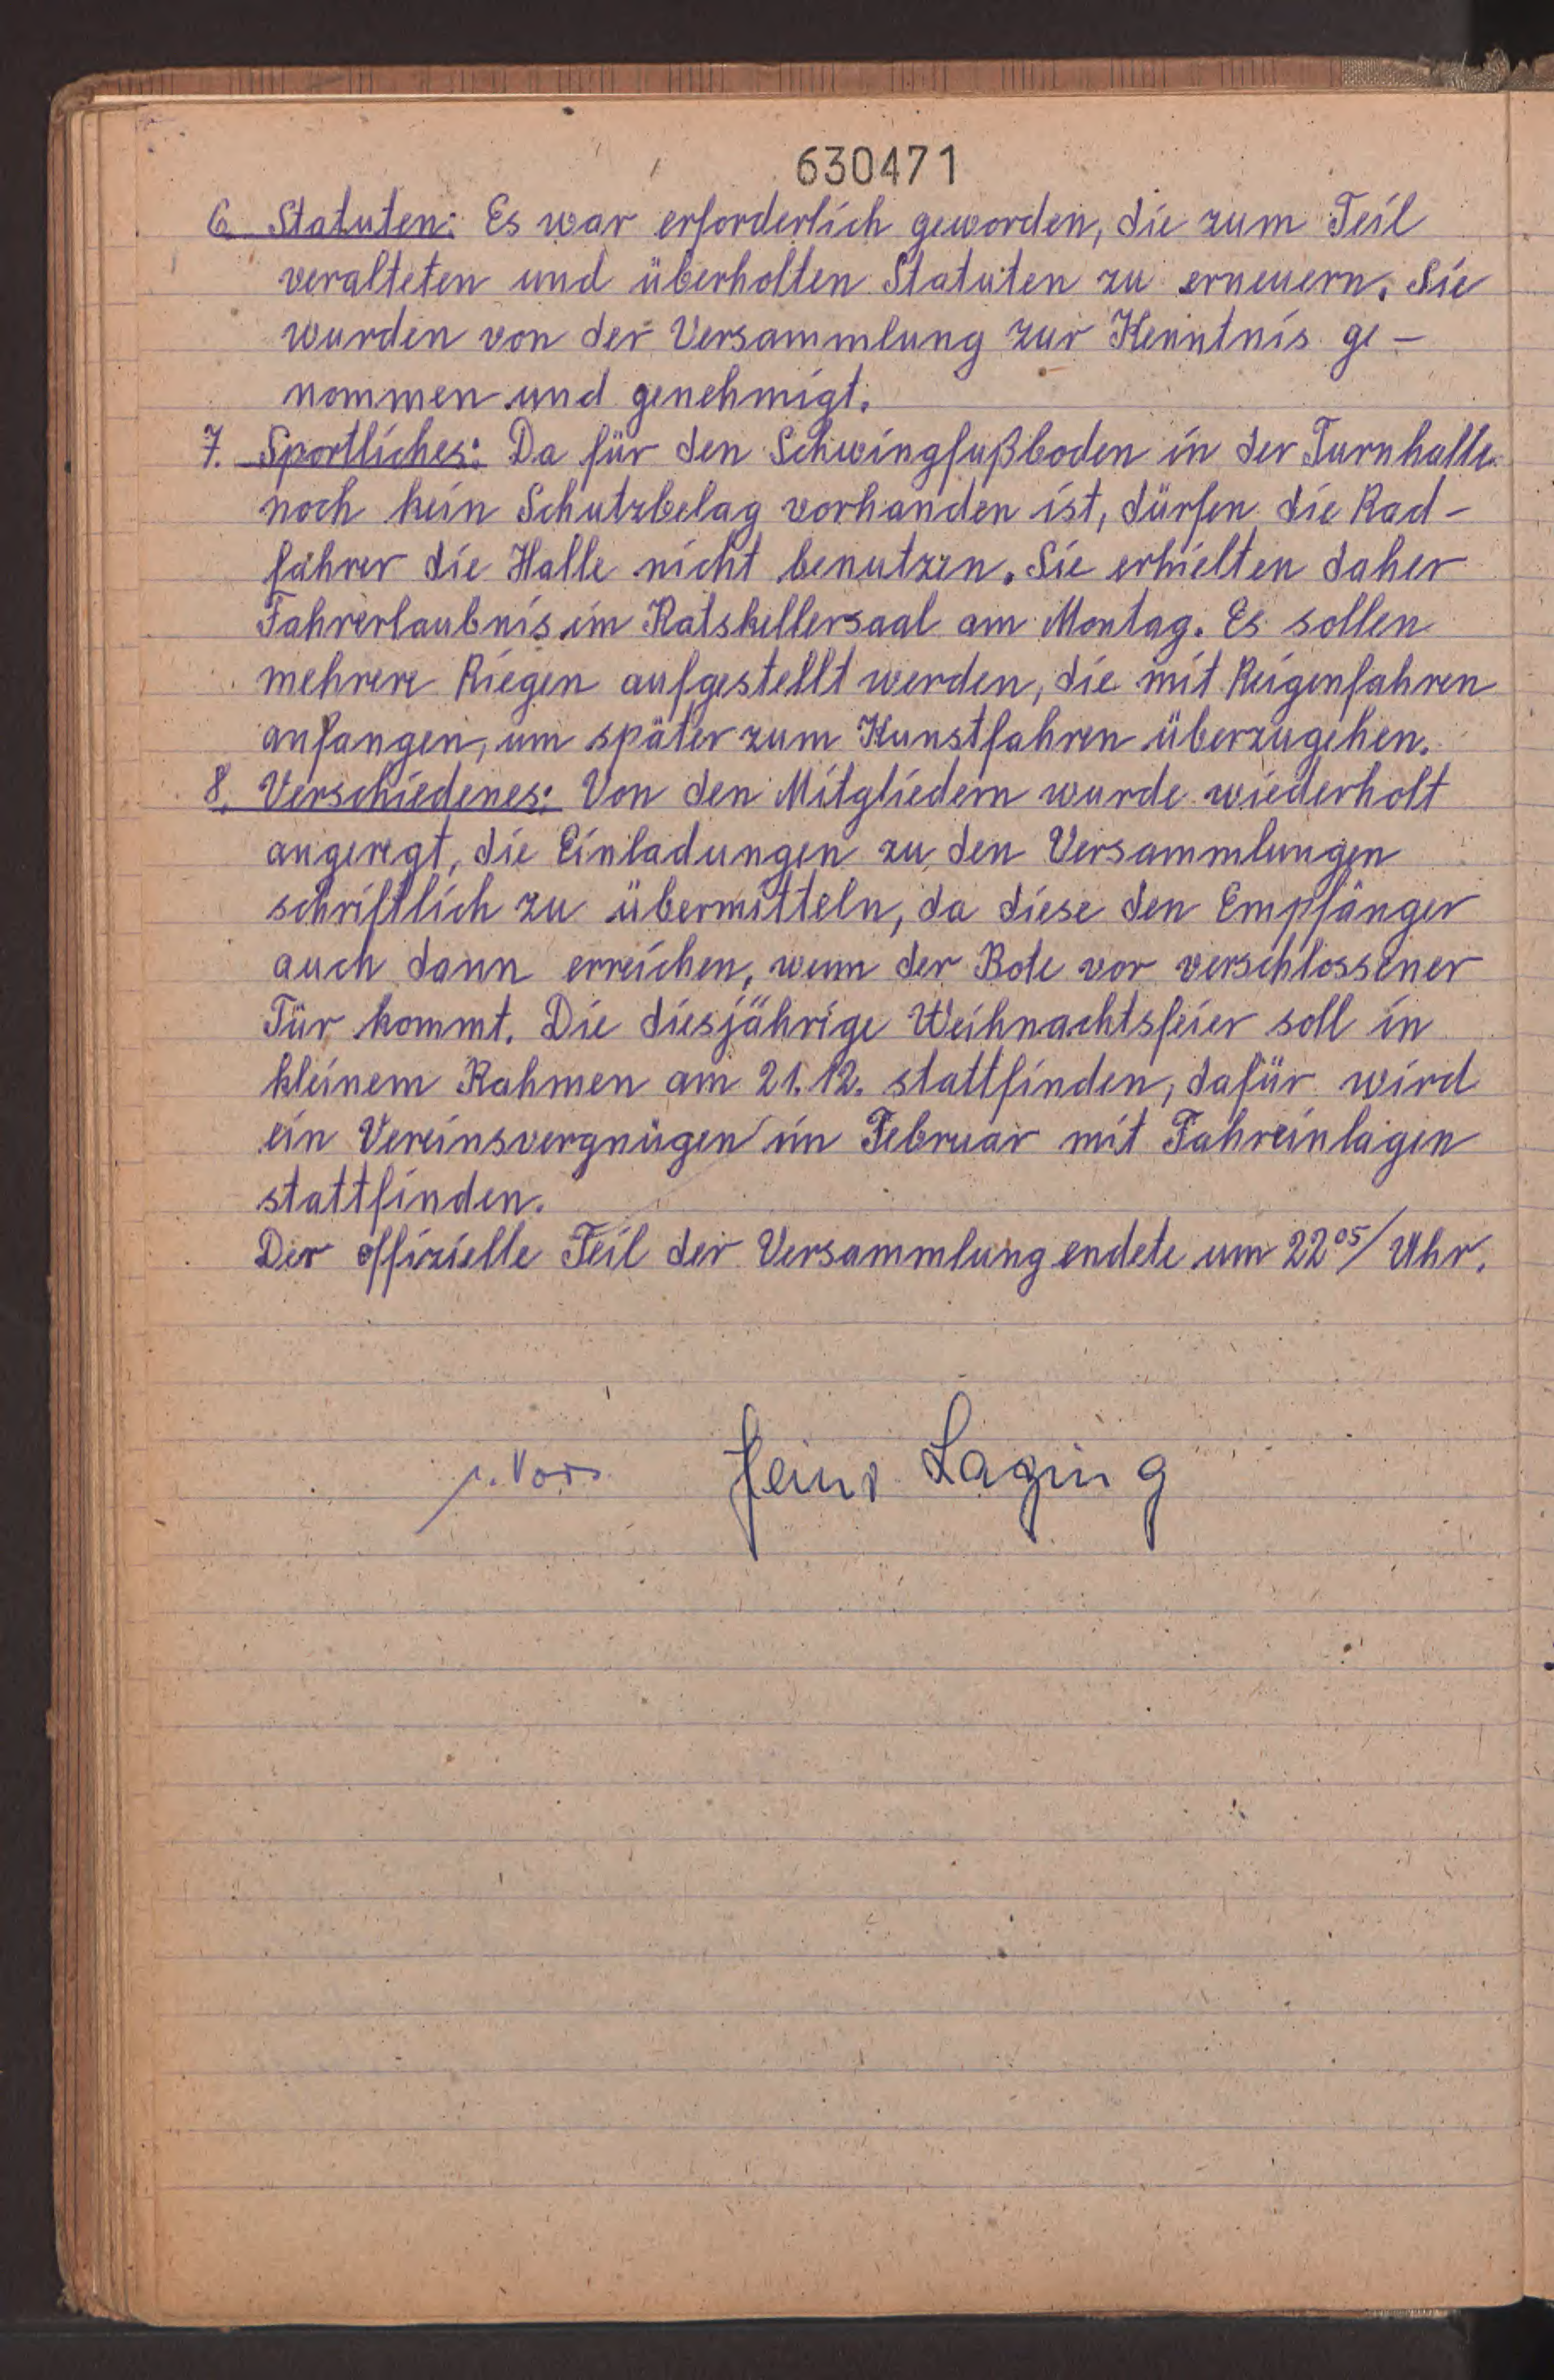 630471
6. Statuten: Es war erforderlich geworden, die zum Teil
veralteten und überholten Statuten zu erneuern. Sie
wurden von der Versammlung zur Kenntnis ge-
nommen und genehmigt.
7. Sportliches: Da für den Schwingfußboden in der Turnhalle
noch kein Schutzbelag vorhanden ist, dürfen die Rad-
fahrer die Halle nicht benutzen. Sie erhielten daher
Fahrerlaubnis im Ratskellersaal am Montag. Es sollen
mehrere Riegen aufgestellt werden, die mit Reigenfahren
anfangen, um später zum Kunstfahren überzugehen.
8. Verschiedenes: Von den Mitgliedern wurde wiederholt
angeregt, die Einladungen zu den Versammlungen
schriftlich zu übermitteln, da diese den Empfänger
auch dann erreichen, wenn der Bote vor verschlossener
Tür kommt. Die diesjährige Weihnachtsfeier soll in
kleinem Rahmen am 21.12. stattfinden, dafür wird
ein Vereinsvergnügen im Februar mit Fahreinlagen
stattfinden.
Der offizielle Teil der Versammlung endete um 22⁰⁵/ Uhr.
1. Vors. Heinz